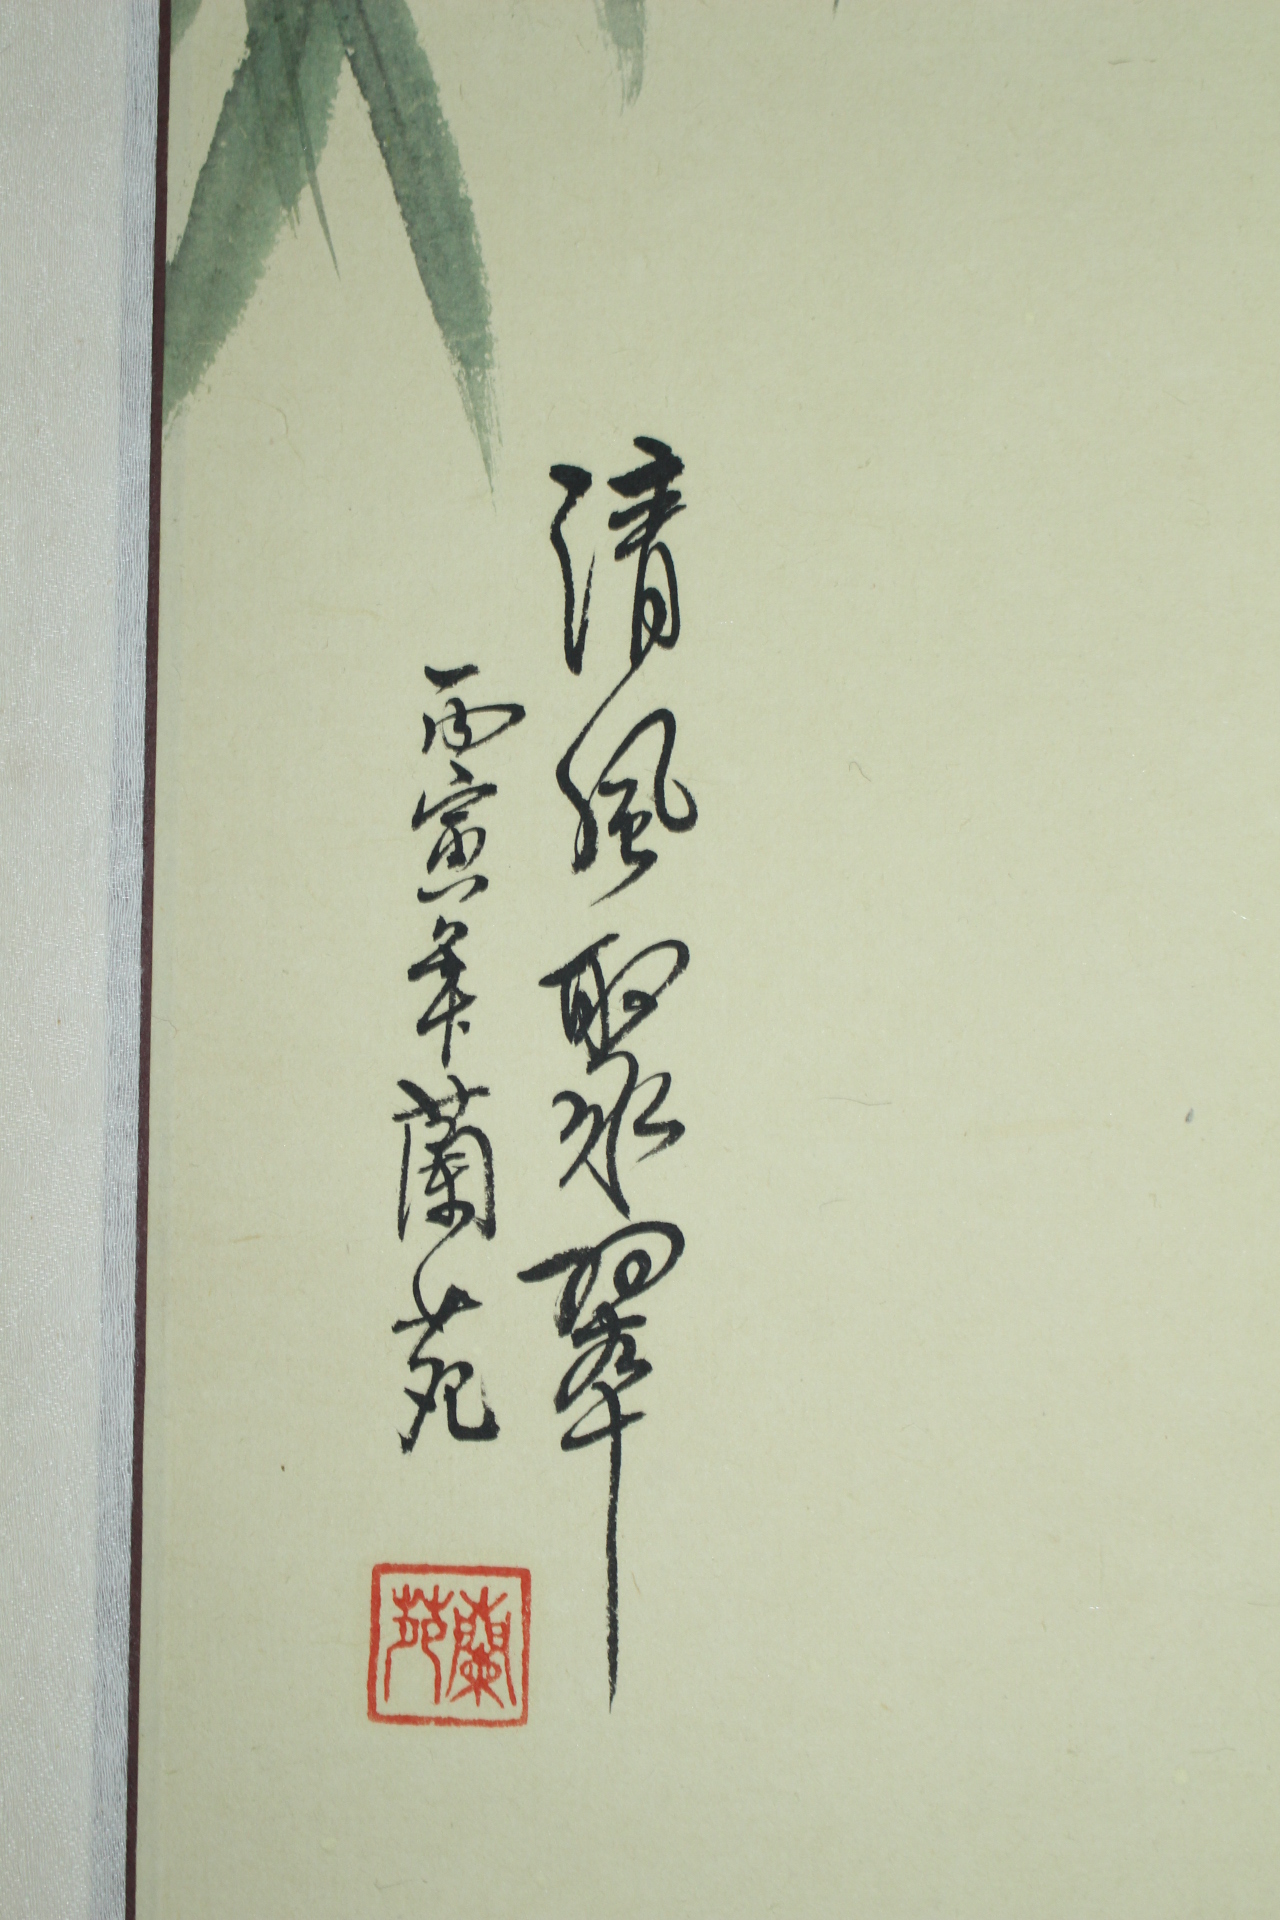 清風聚翠
丙寅年蘭苑
蘭苑